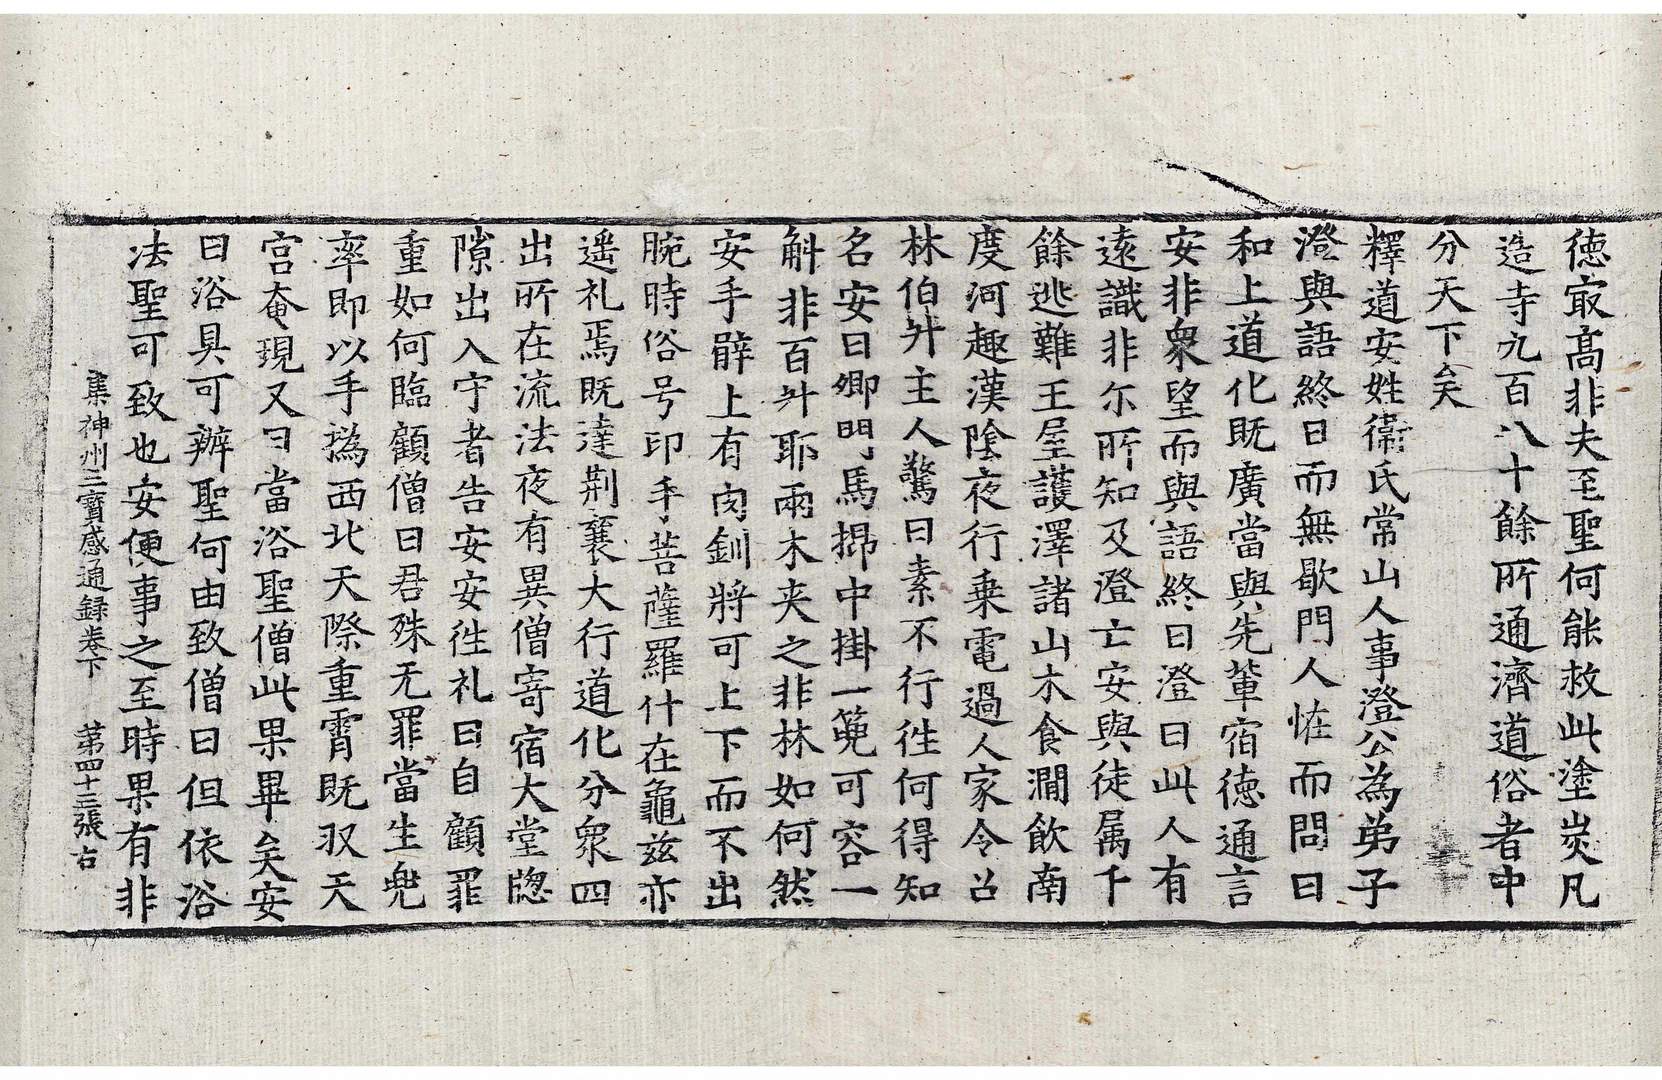 德㝡高非夫至聖何能救此塗炭凡
造寺九百八十餘所通濟道俗者中
分天下矣
釋道安姓衛氏常山人事澄公為弟子
澄與語終日而無歇門人恠而問曰
和上道化既廣當與先輩宿德通言
安非衆望而與語終日澄曰此人有
遠識非尓所知及澄亡安與徒属千
餘逃難王屋護澤諸山木食澗飲南
度河趣漢陰夜行乗電過人家令召
林伯升主人驚曰素不行徃何得知
名安曰卿門馬㭿中掛一篼可容一
斛非百升耶兩木夾之非林如何然
安手臂上有肉釧將可上下而不出
腕時俗号印手菩薩羅什在龜兹亦
遥礼焉既達荆襄大行道化分衆四
出所在流法夜有異僧寄宿大堂牎
隙出入守者告安安徃礼曰自顧罪
重如何臨顧僧曰君殊无罪當生兠
率即以手撝西北天際重霄既㕛天
宫奄現又曰當浴聖僧此果畢矣安
曰浴具可辨聖何由致僧曰但依浴
法聖可致也安便事之至時果有非
集神州三寶感通録卷下 第四十三張 古